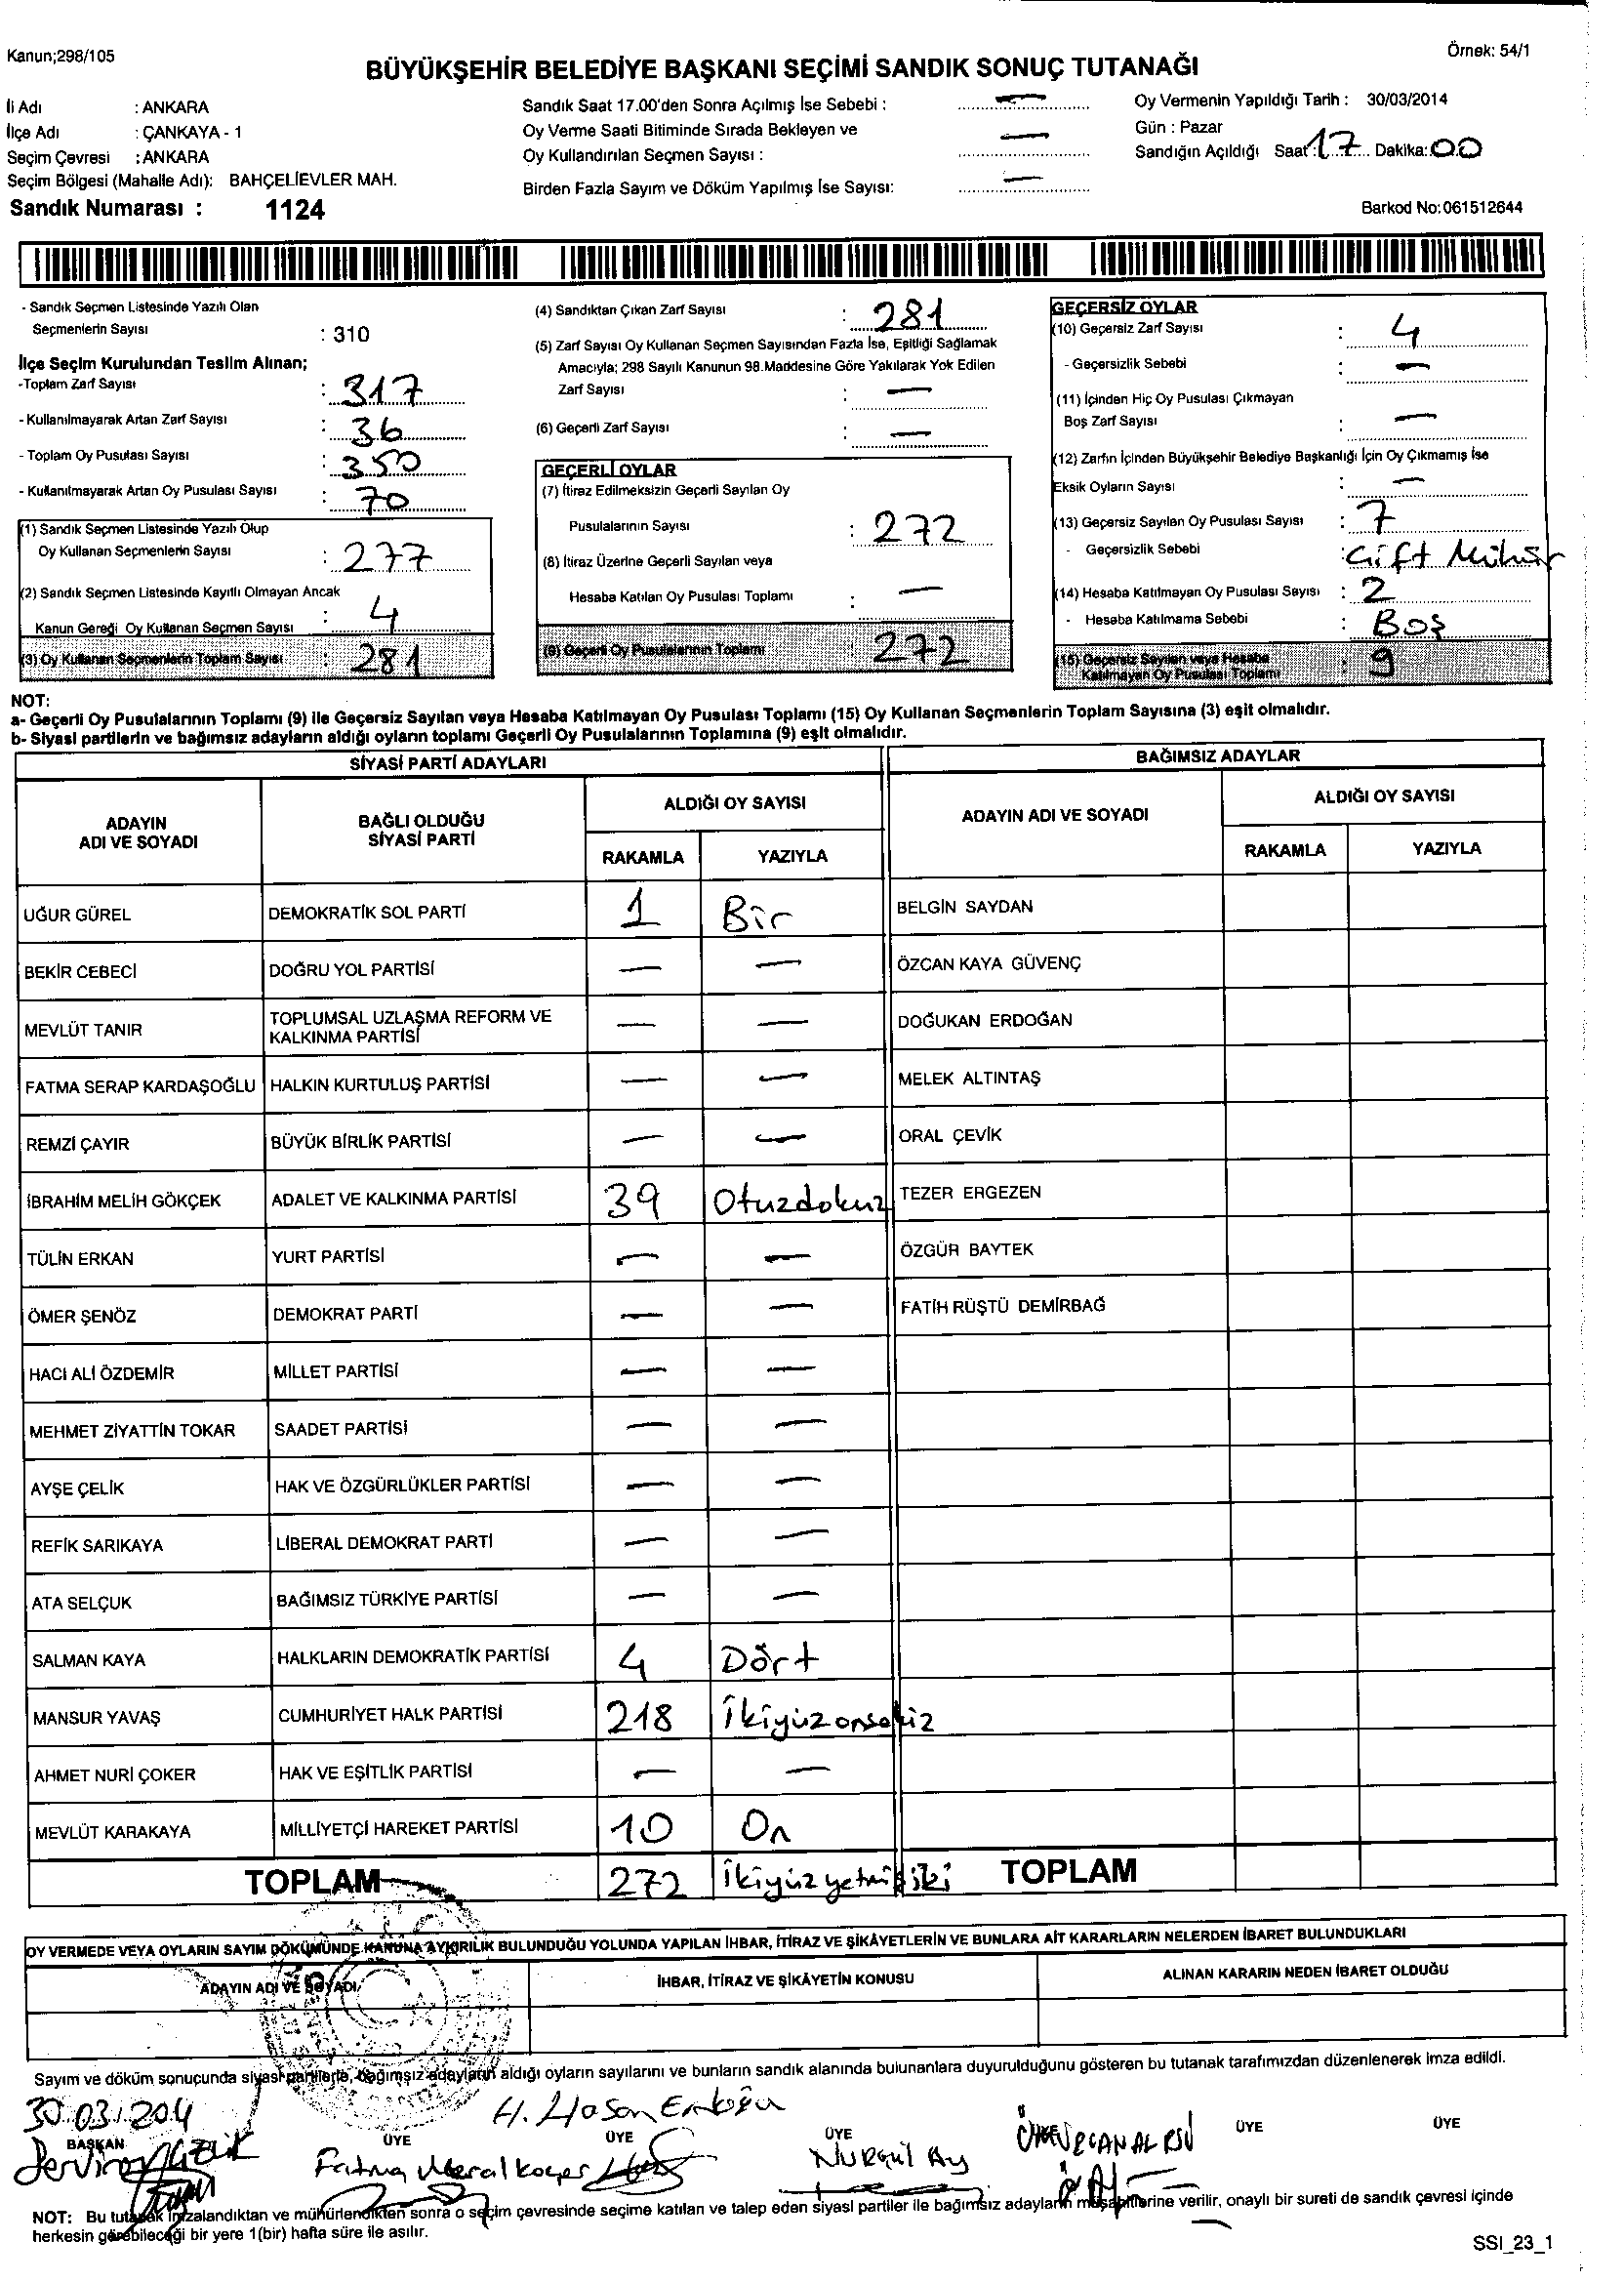 Kanun;298/105
Örnek: 54/1
BÜYÜKŞEHİR BELEDİYE BAŞKANI SEÇİMİ SANDIK SONUÇ TUTANAĞI
İli Adı : ANKARA
İlçe Adı : ÇANKAYA - 1
Seçim Çevresi : ANKARA
Seçim Bölgesi (Mahalle Adı): BAHÇELİEVLER MAH.
Sandık Numarası : 1124
Sandık Saat 17.00'den Sonra Açılmış İse Sebebi : —
Oy Verme Saati Bitiminde Sırada Bekleyen ve
Oy Kullandırılan Seçmen Sayısı : —
Birden Fazla Sayım ve Döküm Yapılmış İse Sayısı: —
Oy Vermenin Yapıldığı Tarih : 30/03/2014
Gün : Pazar
Sandığın Açıldığı Saat : 17 Dakika: 00
Barkod No:061512644
- Sandık Seçmen Listesinde Yazılı Olan
Seçmenlerin Sayısı : 310
İlçe Seçim Kurulundan Teslim Alınan;
-Toplam Zarf Sayısı : 317
- Kullanılmayarak Artan Zarf Sayısı : 36
- Toplam Oy Pusulası Sayısı : 350
- Kullanılmayarak Artan Oy Pusulası Sayısı : 70
(1) Sandık Seçmen Listesinde Yazılı Olup
Oy Kullanan Seçmenlerin Sayısı : 277
(2) Sandık Seçmen Listesinde Kayıtlı Olmayan Ancak
Kanun Gereği Oy Kullanan Seçmen Sayısı : 4
(3) Oy Kullanan Seçmenlerin Toplam Sayısı : 281
(4) Sandıktan Çıkan Zarf Sayısı : 281
(5) Zarf Sayısı Oy Kullanan Seçmen Sayısından Fazla İse, Eşitliği Sağlamak
Amacıyla; 298 Sayılı Kanunun 98.Maddesine Göre Yakılarak Yok Edilen
Zarf Sayısı : —
(6) Geçerli Zarf Sayısı : —
GEÇERLİ OYLAR
(7) İtiraz Edilmeksizin Geçerli Sayılan Oy
Pusulalarının Sayısı : 272
(8) İtiraz Üzerine Geçerli Sayılan veya
Hesaba Katılan Oy Pusulası Toplamı : —
(9) Geçerli Oy Pusulalarının Toplamı 272
GEÇERSİZ OYLAR
(10) Geçersiz Zarf Sayısı : 4
- Geçersizlik Sebebi : —
(11) İçinden Hiç Oy Pusulası Çıkmayan
Boş Zarf Sayısı : —
(12) Zarfın İçinden Büyükşehir Belediye Başkanlığı İçin Oy Çıkmamış İse
Eksik Oyların Sayısı : —
(13) Geçersiz Sayılan Oy Pusulası Sayısı : 7
- Geçersizlik Sebebi : Çift Mühür
(14) Hesaba Katılmayan Oy Pusulası Sayısı : 2
- Hesaba Katılmama Sebebi : Boş
(15) Geçersiz Sayılan veya Hesaba
Katılmayan Oy Pusulası Toplamı : 9
NOT:
a- Geçerli Oy Pusulalarının Toplamı (9) ile Geçersiz Sayılan veya Hesaba Katılmayan Oy Pusulası Toplamı (15) Oy Kullanan Seçmenlerin Toplam Sayısına (3) eşit olmalıdır.
b- Siyasi partilerin ve bağımsız adayların aldığı oyların toplamı Geçerli Oy Pusulalarının Toplamına (9) eşit olmalıdır.
SİYASİ PARTİ ADAYLARI
ADAYIN ADI VE SOYADI
BAĞLI OLDUĞU SİYASİ PARTİ
ALDIĞI OY SAYISI
RAKAMLA YAZIYLA
UĞUR GÜREL DEMOKRATİK SOL PARTİ 1 Bir
BEKİR CEBECİ DOĞRU YOL PARTİSİ — —
MEVLÜT TANIR TOPLUMSAL UZLAŞMA REFORM VE KALKINMA PARTİSİ — —
FATMA SERAP KARDAŞOĞLU HALKIN KURTULUŞ PARTİSİ — —
REMZİ ÇAYIR BÜYÜK BİRLİK PARTİSİ — —
İBRAHİM MELİH GÖKÇEK ADALET VE KALKINMA PARTİSİ 39 Otuzdokuz
TÜLİN ERKAN YURT PARTİSİ — —
ÖMER ŞENÖZ DEMOKRAT PARTİ — —
HACI ALİ ÖZDEMİR MİLLET PARTİSİ — —
MEHMET ZİYATTİN TOKAR SAADET PARTİSİ — —
AYŞE ÇELİK HAK VE ÖZGÜRLÜKLER PARTİSİ — —
REFİK SARIKAYA LİBERAL DEMOKRAT PARTİ — —
ATA SELÇUK BAĞIMSIZ TÜRKİYE PARTİSİ — —
SALMAN KAYA HALKLARIN DEMOKRATİK PARTİSİ 4 Dört
MANSUR YAVAŞ CUMHURİYET HALK PARTİSİ 218 İkiyüzonsekiz
AHMET NURİ ÇOKER HAK VE EŞİTLİK PARTİSİ — —
MEVLÜT KARAKAYA MİLLİYETÇİ HAREKET PARTİSİ 10 On
TOPLAM 272 İkiyüzyetmişiki
BAĞIMSIZ ADAYLAR
ADAYIN ADI VE SOYADI
ALDIĞI OY SAYISI
RAKAMLA YAZIYLA
BELGİN SAYDAN
ÖZCAN KAYA GÜVENÇ
DOĞUKAN ERDOĞAN
MELEK ALTINTAŞ
ORAL ÇEVİK
TEZER ERGEZEN
ÖZGÜR BAYTEK
FATİH RÜŞTÜ DEMİRBAĞ
TOPLAM
OY VERMEDE VEYA OYLARIN SAYIM DÖKÜMÜNDE KANUNA AYKIRILIK BULUNDUĞU YOLUNDA YAPILAN İHBAR, İTİRAZ VE ŞİKÂYETLERİN VE BUNLARA AİT KARARLARIN NELERDEN İBARET BULUNDUKLARI
ADAYIN ADI VE SOYADI
İHBAR, İTİRAZ VE ŞİKÂYETİN KONUSU
ALINAN KARARIN NEDEN İBARET OLDUĞU
Sayım ve döküm sonucunda siyasi partilerle, bağımsız adayların aldığı oyların sayılarını ve bunların sandık alanında bulunanlara duyurulduğunu gösteren bu tutanak tarafımızdan düzenlenerek imza edildi.
30.03.2014
H. Hasan
BAŞKAN ÜYE ÜYE ÜYE ÜYE ÜYE
Fatma Meral
NURGÜL Ay
NOT: Bu tutanak imzalandıktan ve mühürlendikten sonra o seçim çevresinde seçime katılan ve talep eden siyasi partiler ile bağımsız adayların müşahitlerine verilir, onaylı bir sureti de sandık çevresi içinde
herkesin görebileceği bir yere 1(bir) hafta süre ile asılır.
SSI_23_1